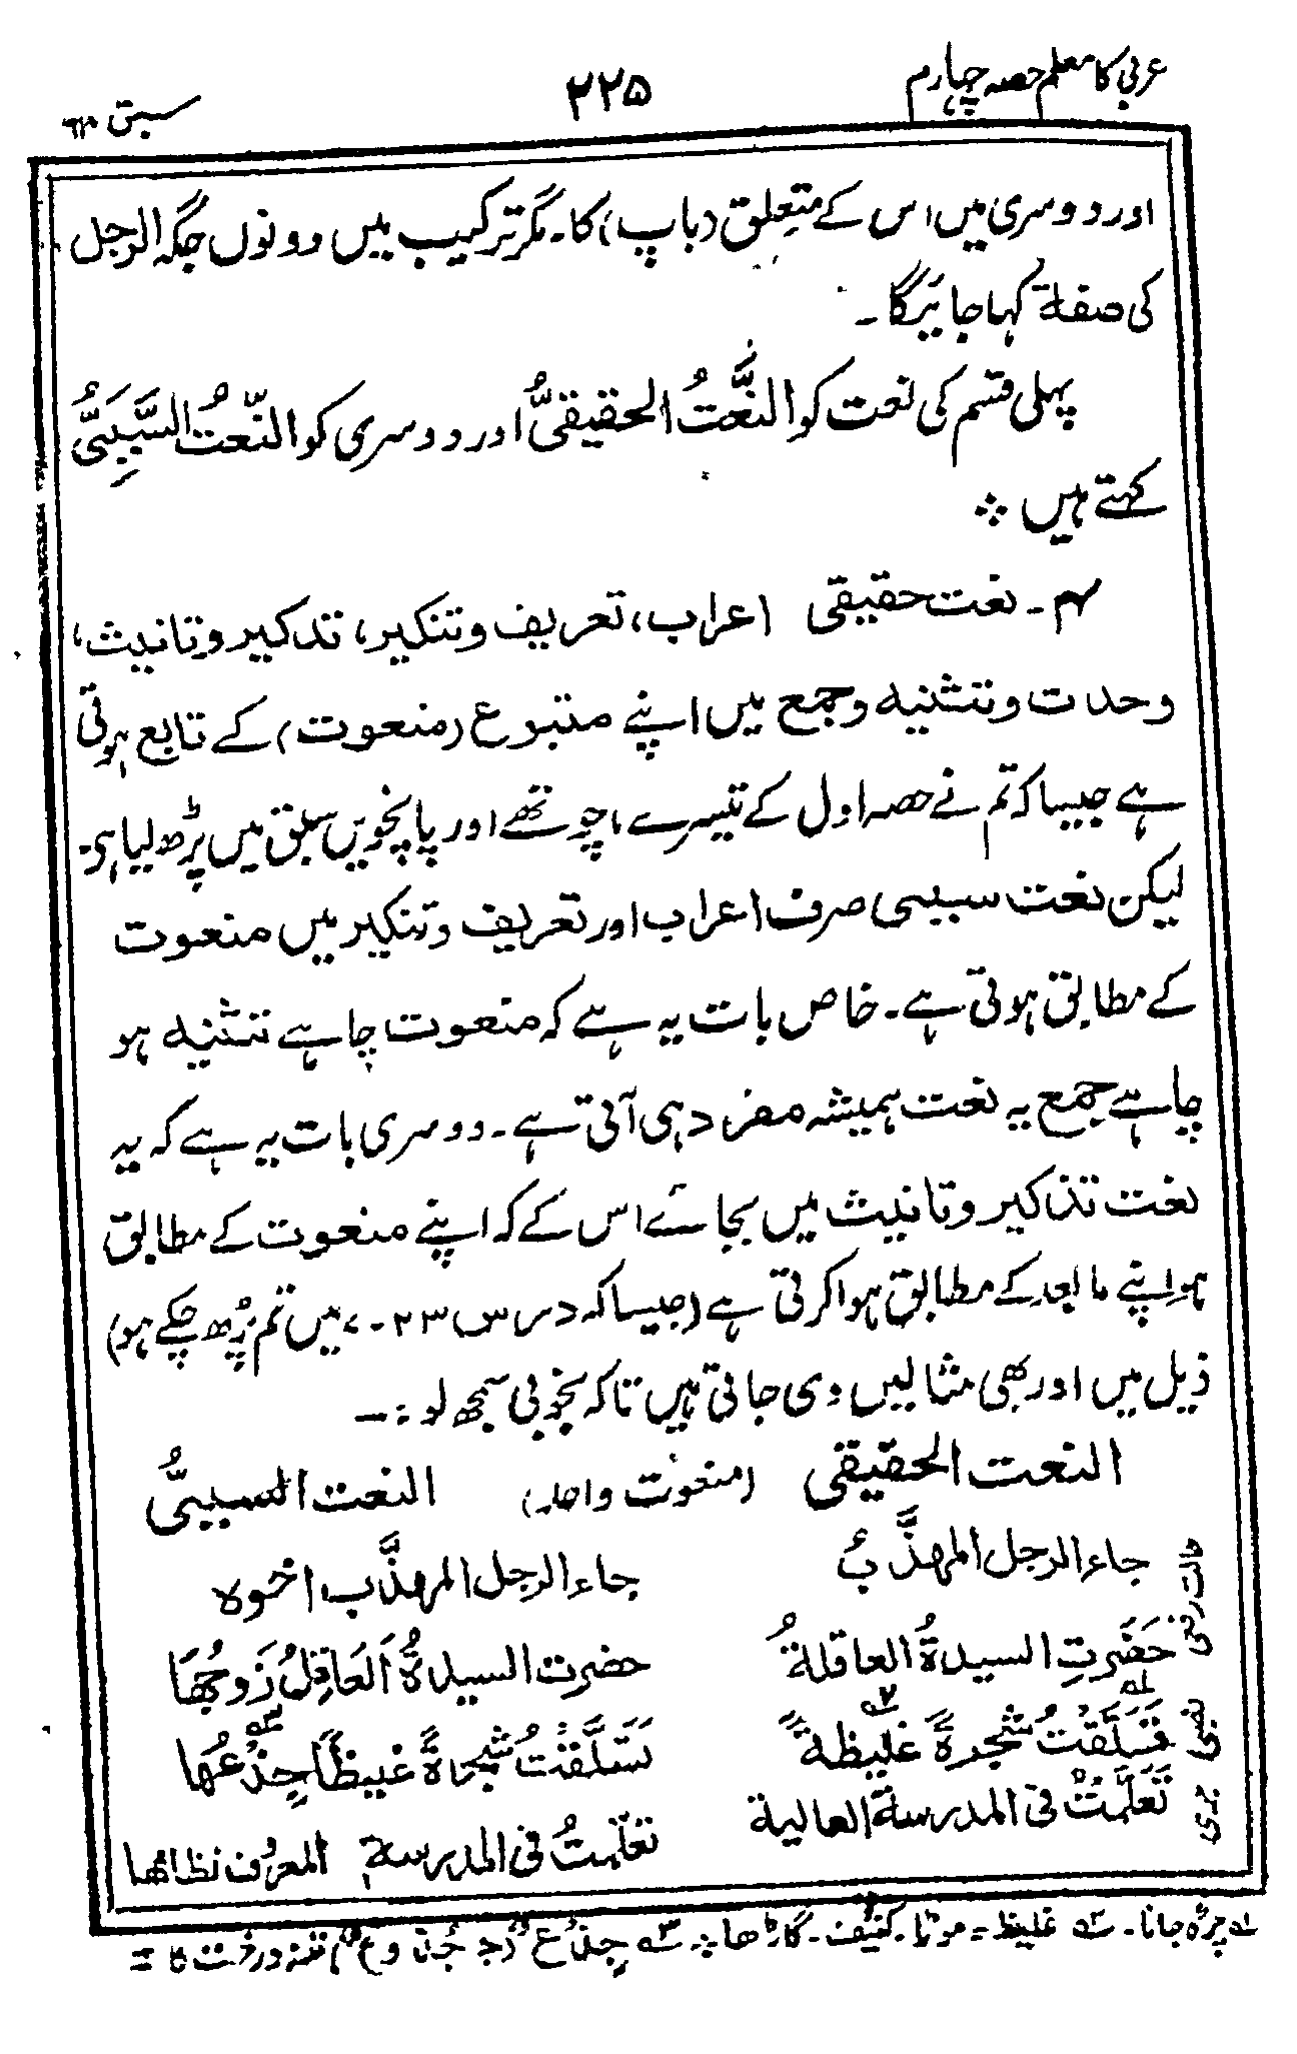 عربی کا معلم حصہ چہارم
۲۲۵
سبق ۶۳
اور دوسری میں اس کے متعلق (باپ) کا۔ مگر ترکیب میں دونوں جگہ الرجل
کی صفۃ کہا جائیگا۔
پہلی قسم کی نعت کو النَّعتُ الحقیقیُّ اور دوسری کو النّعتُ السَّبَبِیُّ
کہتے ہیں ❖
۴۔ نعت حقیقی اعراب، تعریف وتنکیر، تذکیر وتانیث،
وحدت وتثنیہ وجمع میں اپنے متبوع (منعوت) کے تابع ہوتی
ہے جیسا کہ تم نے حصہ اول کے تیسرے، چوتھے اور پانچویں سبق میں پڑھ لیا ہی۔
لیکن نعت سببی صرف اعراب اور تعریف وتنکیر میں منعوت
کے مطابق ہوتی ہے۔ خاص بات یہ ہے کہ منعوت چاہے تثنیہ ہو
چاہے جمع یہ نعت ہمیشہ مفرد ہی آتی ہے۔ دوسری بات یہ ہے کہ یہ
نعت تذکیر وتانیث میں بجائے اس کے کہ اپنے منعوت کے مطابق
ہو اپنے مابعد کے مطابق ہوا کرتی ہے (جیسا کہ درس ۲۳-۷ میں تم پڑھ چکے ہو)
ذیل میں اور بھی مثالیں دی جاتی ہیں تاکہ بخوبی سمجھ لو :۔
النعت الحقیقی (منعوت واحد) النعت السببیُّ
حالت رفعی جاء الرجل المهذَّبُ جاء الرجل المهذَّب اخوه
حَضَرَتِ السیدةُ العاقلةُ حضرت السیدةُ اَلعَاقِلُ زَوجُهَا
نصبی تَسَلَّقتُ شجرةً غلیظةً تسَلَّقتُ شجرةً غلیظًا جِذعُهَا
جری تَعَلَّمتُ فی المدرسة العالیة تعلّمتُ فی المدرسة المعروف نظامُها
لہ چڑھ جانا۔ ۲ہ غلیظ = موٹا۔ کثیف۔ گاڑھا ❖ ۳ہ جِذعٌ (ج جُذوعٌ) تنۂ درخت